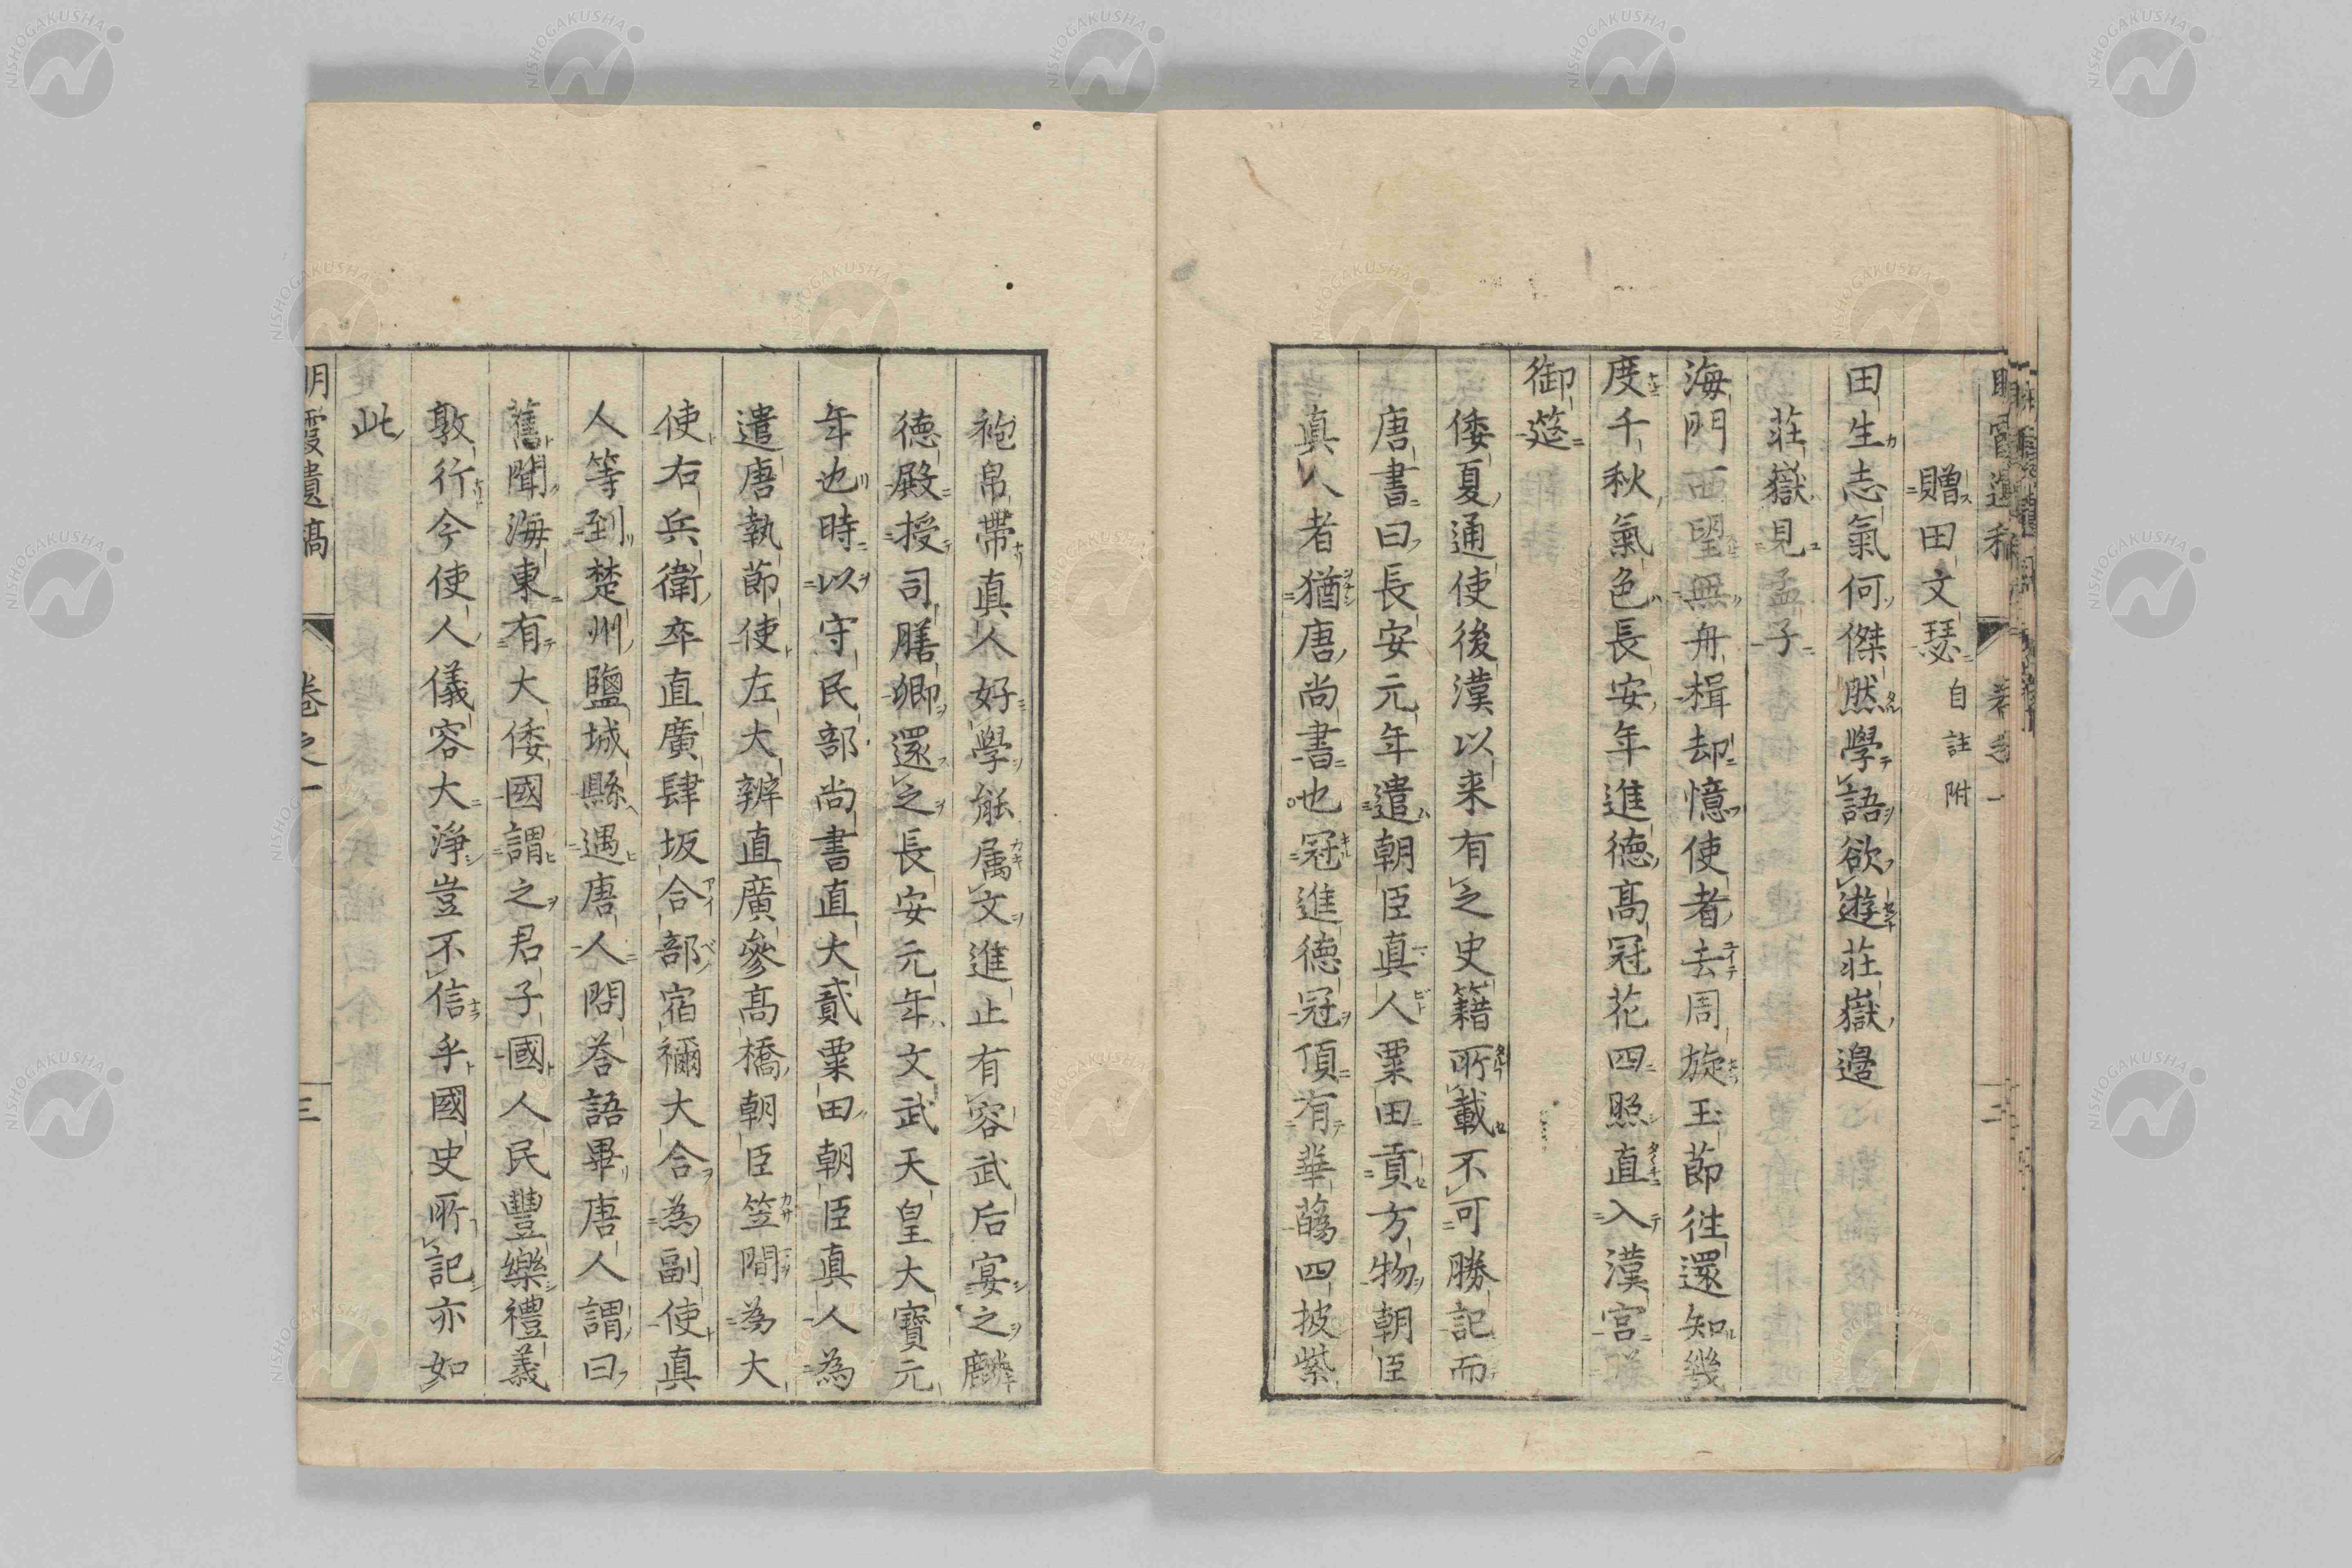 贈田文瑟 自註附
田生志氣何傑然學語欲遊莊嶽邉
莊嶽見孟子
海門西望無舟楫却憶使者去周旋玉節徃還知幾
度千秋氣色長安年進德高冠花四照直入漢宮
御筵
倭夏通使後漢以来有之史籍所載不可勝記而
唐書曰長安元年遣朝臣真人粟田貢方物朝臣
真人者猶唐尚書也冠進徳冠頂有華蘤四披紫
袍帛帶真人好學能属文進止有容武后宴之麟
德殿授司膳卿還之長安元年文武天皇大寶元
年也時以守民部尚書直大貳粟田朝臣真人為
遣唐執節使左大辨直廣參高橋朝臣笠間為大
使右兵衛卒直廣肆坂合部宿禰大合為副使真
人等到楚州鹽城縣遇唐人問荅語畢唐人謂曰
舊聞海東有大倭國謂之君子國人民豐樂禮義
敦行今使人儀容大淨豈不信乎國史所記亦如
此
明霞遺稿 卷之一 三
NISHOGAKUSHA